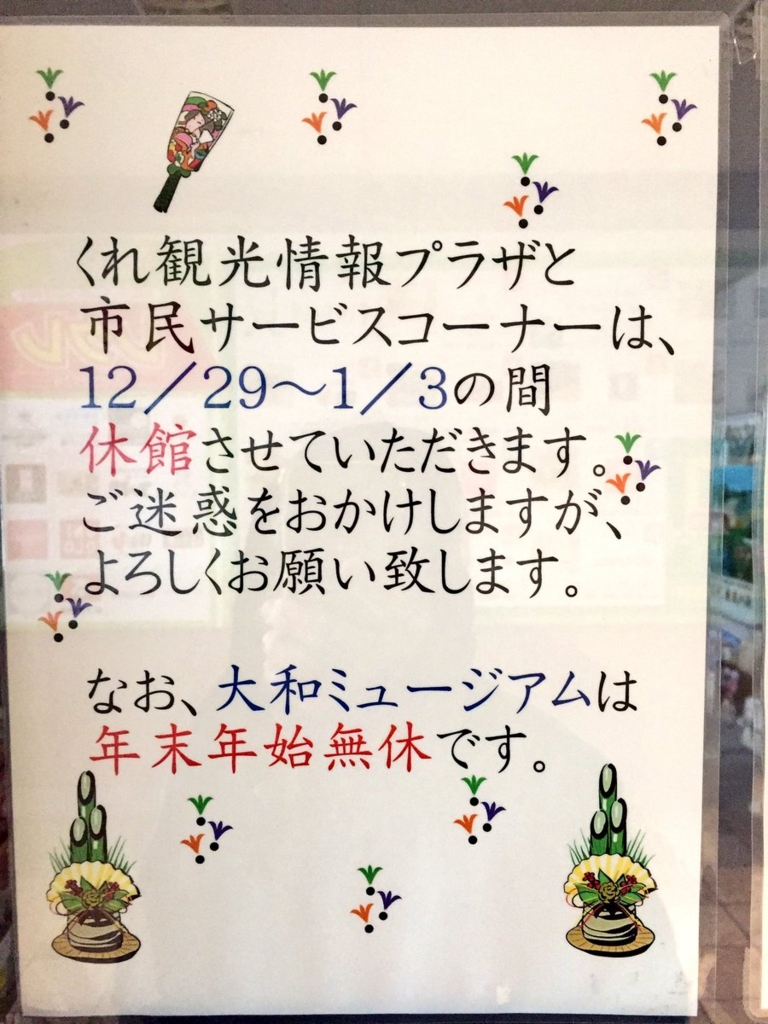 くれ観光情報プラザと
市民サービスコーナーは、
12／29～1／3の間
休館させていただきます。
ご迷惑をおかけしますが、
よろしくお願い致します。
なお、大和ミュージアムは
年末年始無休です。